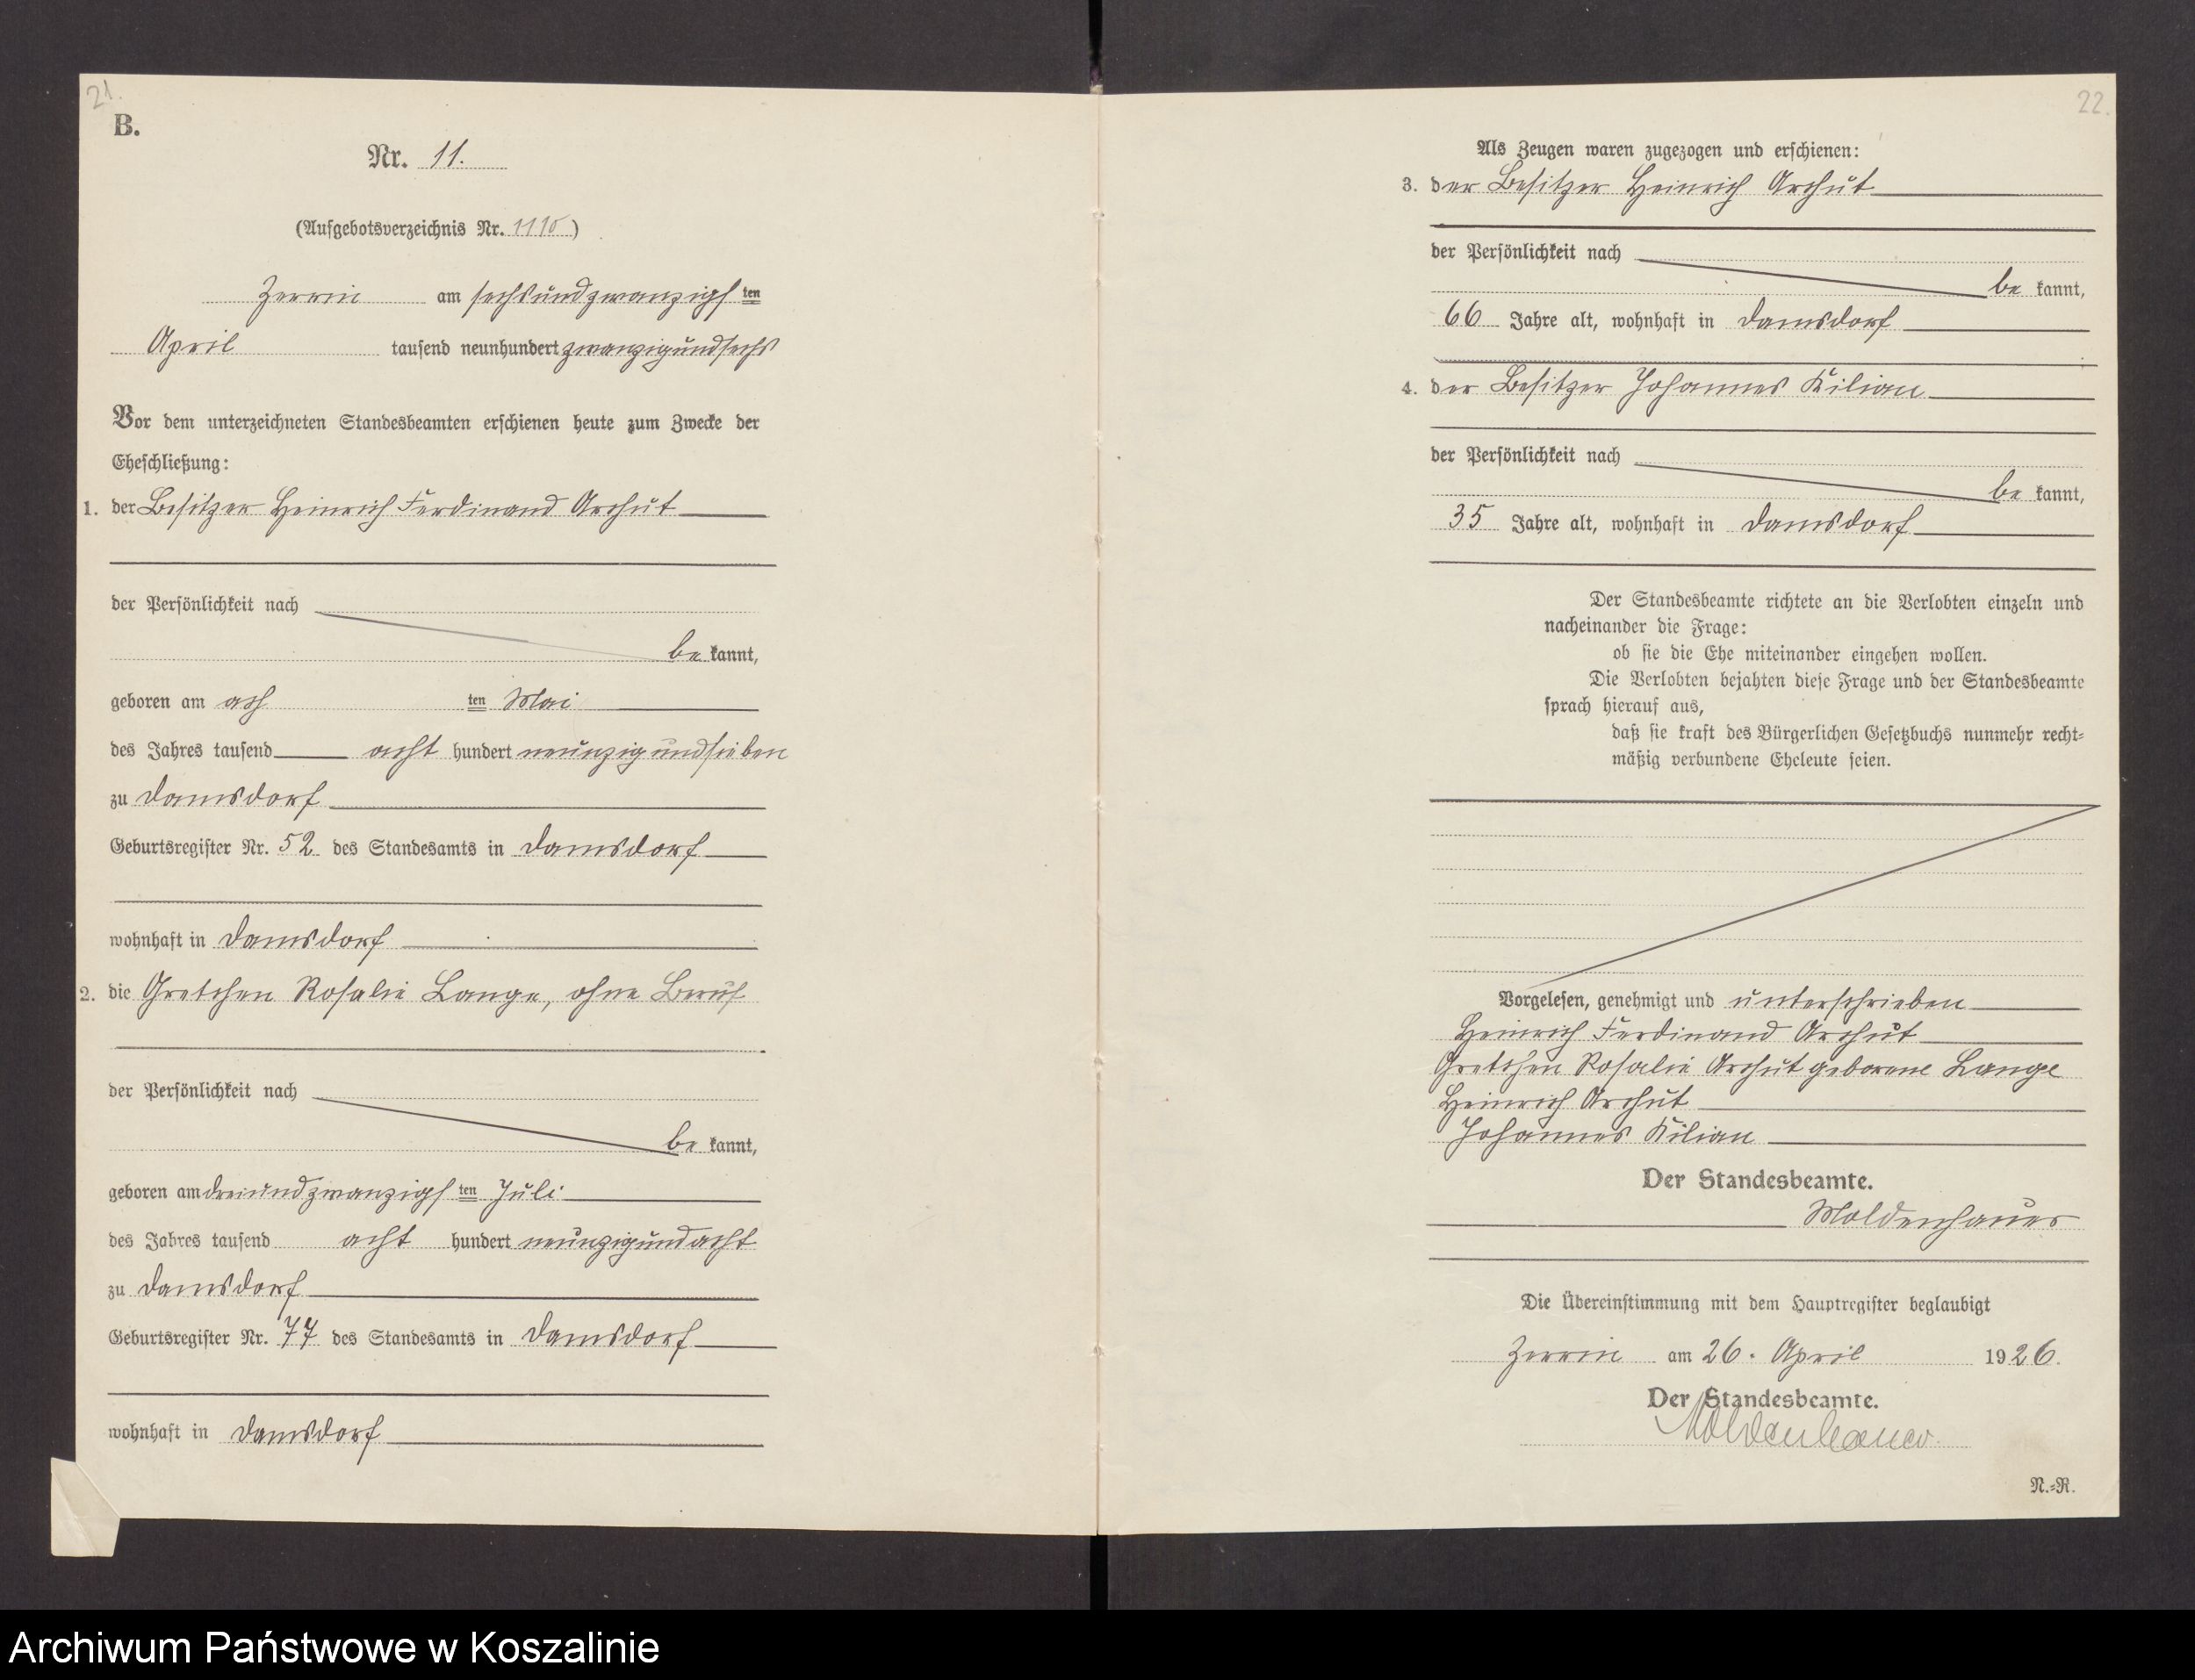 21.
B.
Nr. 11.
(Aufgebotsverzeichnis Nr. )
Zerrin am sechsundzwanzigsten
April tausend neunhundert zwanzigundsechs
Vor dem unterzeichneten Standesbeamten erschienen heute zum Zwecke der
Eheschließung:
1. der Besitzer Heinrich Ferdinand Archut
der Persönlichkeit nach
be kannt,
geboren am ach ten Mai
des Jahres tausend acht hundert neunzigundsieben
zu Damsdorf
Geburtsregister Nr. 52 des Standesamts in Damsdorf
wohnhaft in Damsdorf
2. die Gretchen Rosalie Lange, ohne Beruf
der Persönlichkeit nach
be kannt,
geboren am dreiundzwanzigsten Juli
des Jahres tausend acht hundert neunzigundacht
zu Damsdorf
Geburtsregister Nr. 77 des Standesamts in Damsdorf
wohnhaft in Damsdorf
22.
Als Zeugen waren zugezogen und erschienen:
3. der Besitzer Heinrich Archut
der Persönlichkeit nach
be kannt,
66 Jahre alt, wohnhaft in Damsdorf
4. der Besitzer Johannes Kilian
der Persönlichkeit nach
be kannt,
35 Jahre alt, wohnhaft in Damsdorf
Der Standesbeamte richtete an die Verlobten einzeln und
nacheinander die Frage:
ob sie die Ehe miteinander eingehen wollen.
Die Verlobten bejahten diese Frage und der Standesbeamte
sprach hierauf aus,
daß sie kraft des Bürgerlichen Gesetzbuchs nunmehr recht-
mäßig verbundene Eheleute seien.
Vorgelesen, genehmigt und unterschrieben
Heinrich Ferdinand Archut
Gretchen Rosalie Archut geborene Lange
Heinrich Archut
Johannes Kilian
Der Standesbeamte.
Moldenhauer
Die Übereinstimmung mit dem Hauptregister beglaubigt
Zerrin am 26. April 1926.
Der Standesbeamte.
Moldenhauer.
N.-R.
Archiwum Państwowe w Koszalinie